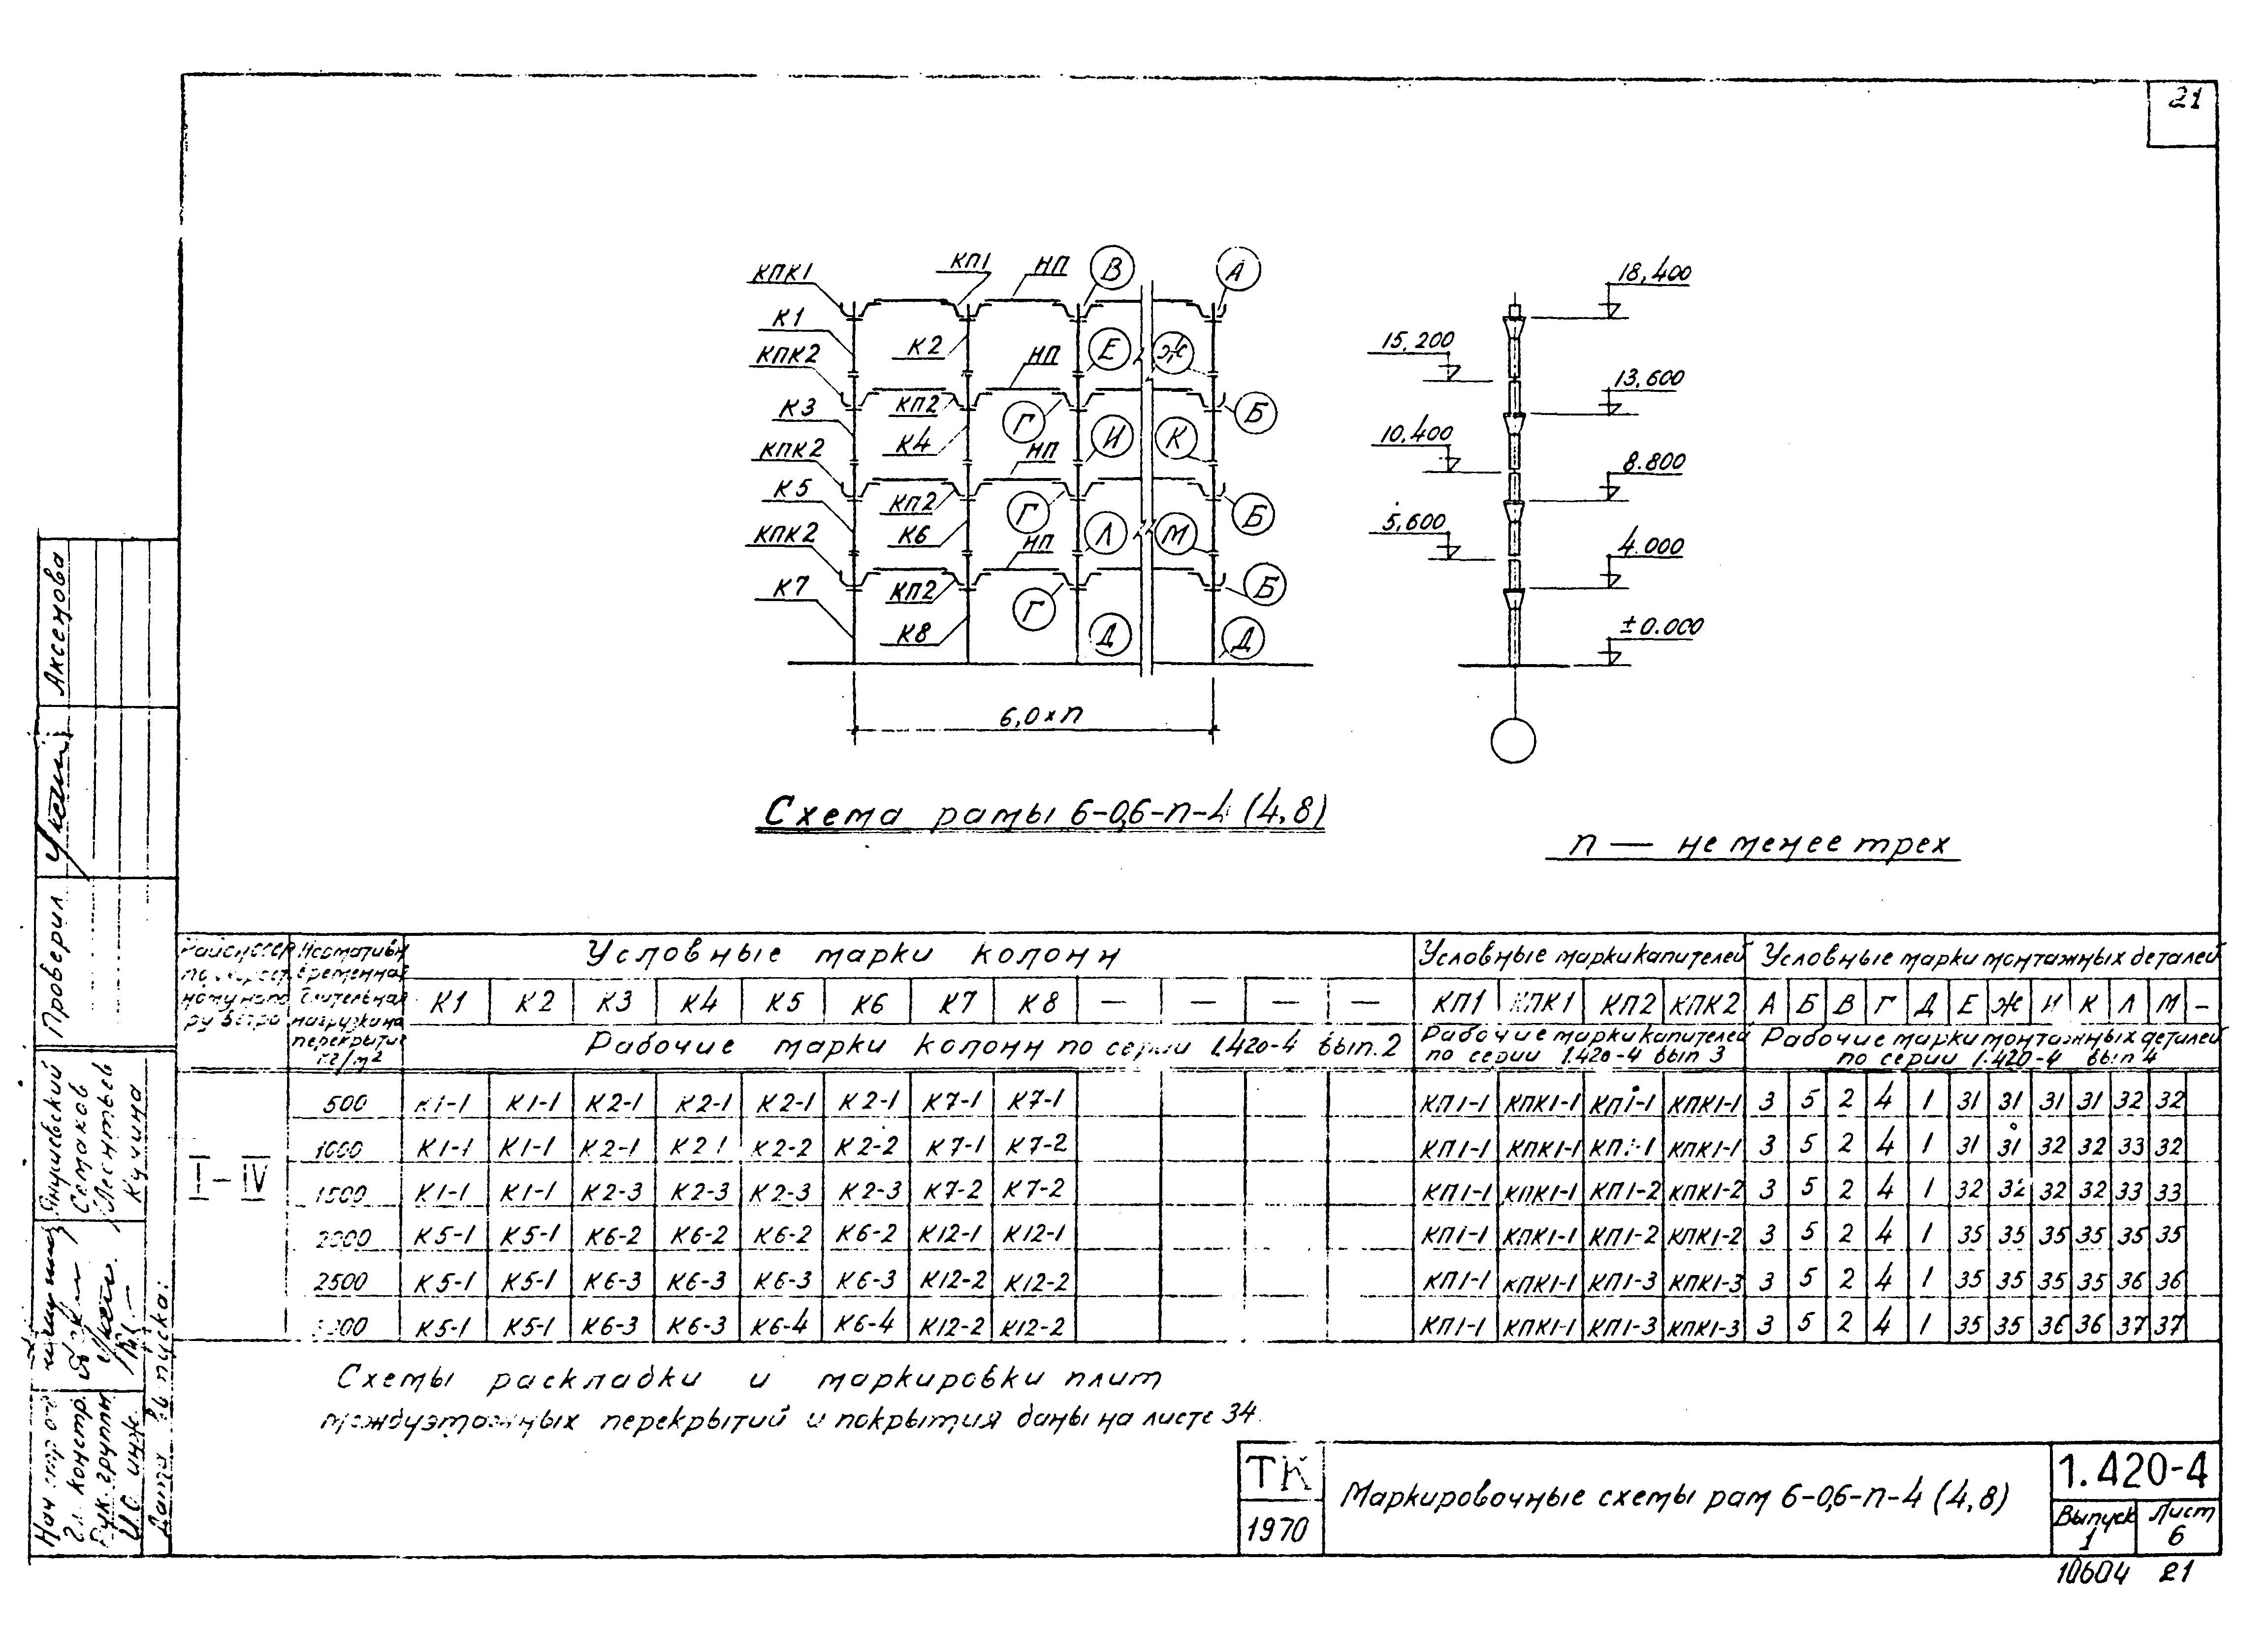 21
КПК1
КП1
НП
В
А
К1
К2
КПК2
НП
Е
Ж
К3
КП2
К4
Г
И
К
Б
КПК2
НП
К5
КП2
К6
Г
Л
М
Б
КПК2
НП
К7
КП2
К8
Г
Д
Б
Д
6,0×п
18,400
15,200
13,600
10,400
8.800
5,600
4.000
±0.000
Схема рамы 6-0,6-п-4 (4,8)
п — не менее трех
Условные марки колонн
Условные марки капителей
Условные марки монтажных деталей
временная
длительная
нагрузка на
перекрытие
кг/м²
ру ветра
К1 К2 К3 К4 К5 К6 К7 К8 — — — —
КП1 КПК1 КП2 КПК2
А Б В Г Д Е Ж И К Л М —
Рабочие марки колонн по серии 1.420-4 вып. 2
Рабочие марки капителей
по серии 1.420-4 вып 3
Рабочие марки монтажных деталей
по серии 1.420-4 вып 4
I-IV
500 К1-1 К1-1 К2-1 К2-1 К2-1 К2-1 К7-1 К7-1 КП1-1 КПК1-1 КП1-1 КПК1-1 3 5 2 4 1 31 31 31 31 32 32
1000 К1-1 К1-1 К2-1 К2 1 К2-2 К2-2 К7-1 К7-2 КП1-1 КПК1-1 КП1-1 КПК1-1 3 5 2 4 1 31 31 32 32 33 32
1500 К1-1 К1-1 К2-3 К2-3 К2-3 К2-3 К7-2 К7-2 КП1-1 КПК1-1 КП1-2 КПК1-2 3 5 2 4 1 32 32 32 32 33 33
2000 К5-1 К5-1 К6-2 К6-2 К6-2 К6-2 К12-1 К12-1 КП1-1 КПК1-1 КП1-2 КПК1-2 3 5 2 4 1 35 35 35 35 35 35
2500 К5-1 К5-1 К6-3 К6-3 К6-3 К6-3 К12-2 К12-2 КП1-1 КПК1-1 КП1-3 КПК1-3 3 5 2 4 1 35 35 35 35 36 36
К5-1 К5-1 К6-3 К6-3 К6-4 К6-4 К12-2 К12-2 КП1-1 КПК1-1 КП1-3 КПК1-3 3 5 2 4 1 35 35 36 36 37 37
Схемы раскладки и маркировки плит
междуэтажных перекрытий и покрытия даны на листе 34.
ТК
1970
Маркировочные схемы рам 6-0,6-п-4 (4,8)
1.420-4
Выпуск
1
Лист
6
10604 21
Проверил
Аксенова
Янушевский
Семаков
Леонтьев
Кучина
Гл. констр.
Рук. группы
Дата